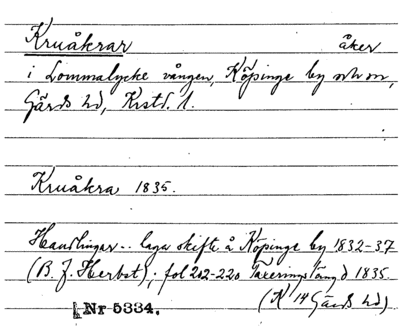 Kruåkrar åker
i Lommalycke vången, Köpinge by o sn,
Gärds hd, Krstd. l.
Kruåkra 1835.
Handlingar .. laga skifte å Köpinge by 1832-37
(B. J. Herbst); fol 212-220 Taxeringslängd 1835
(K 14 Gärds hd)
Nr 5334.